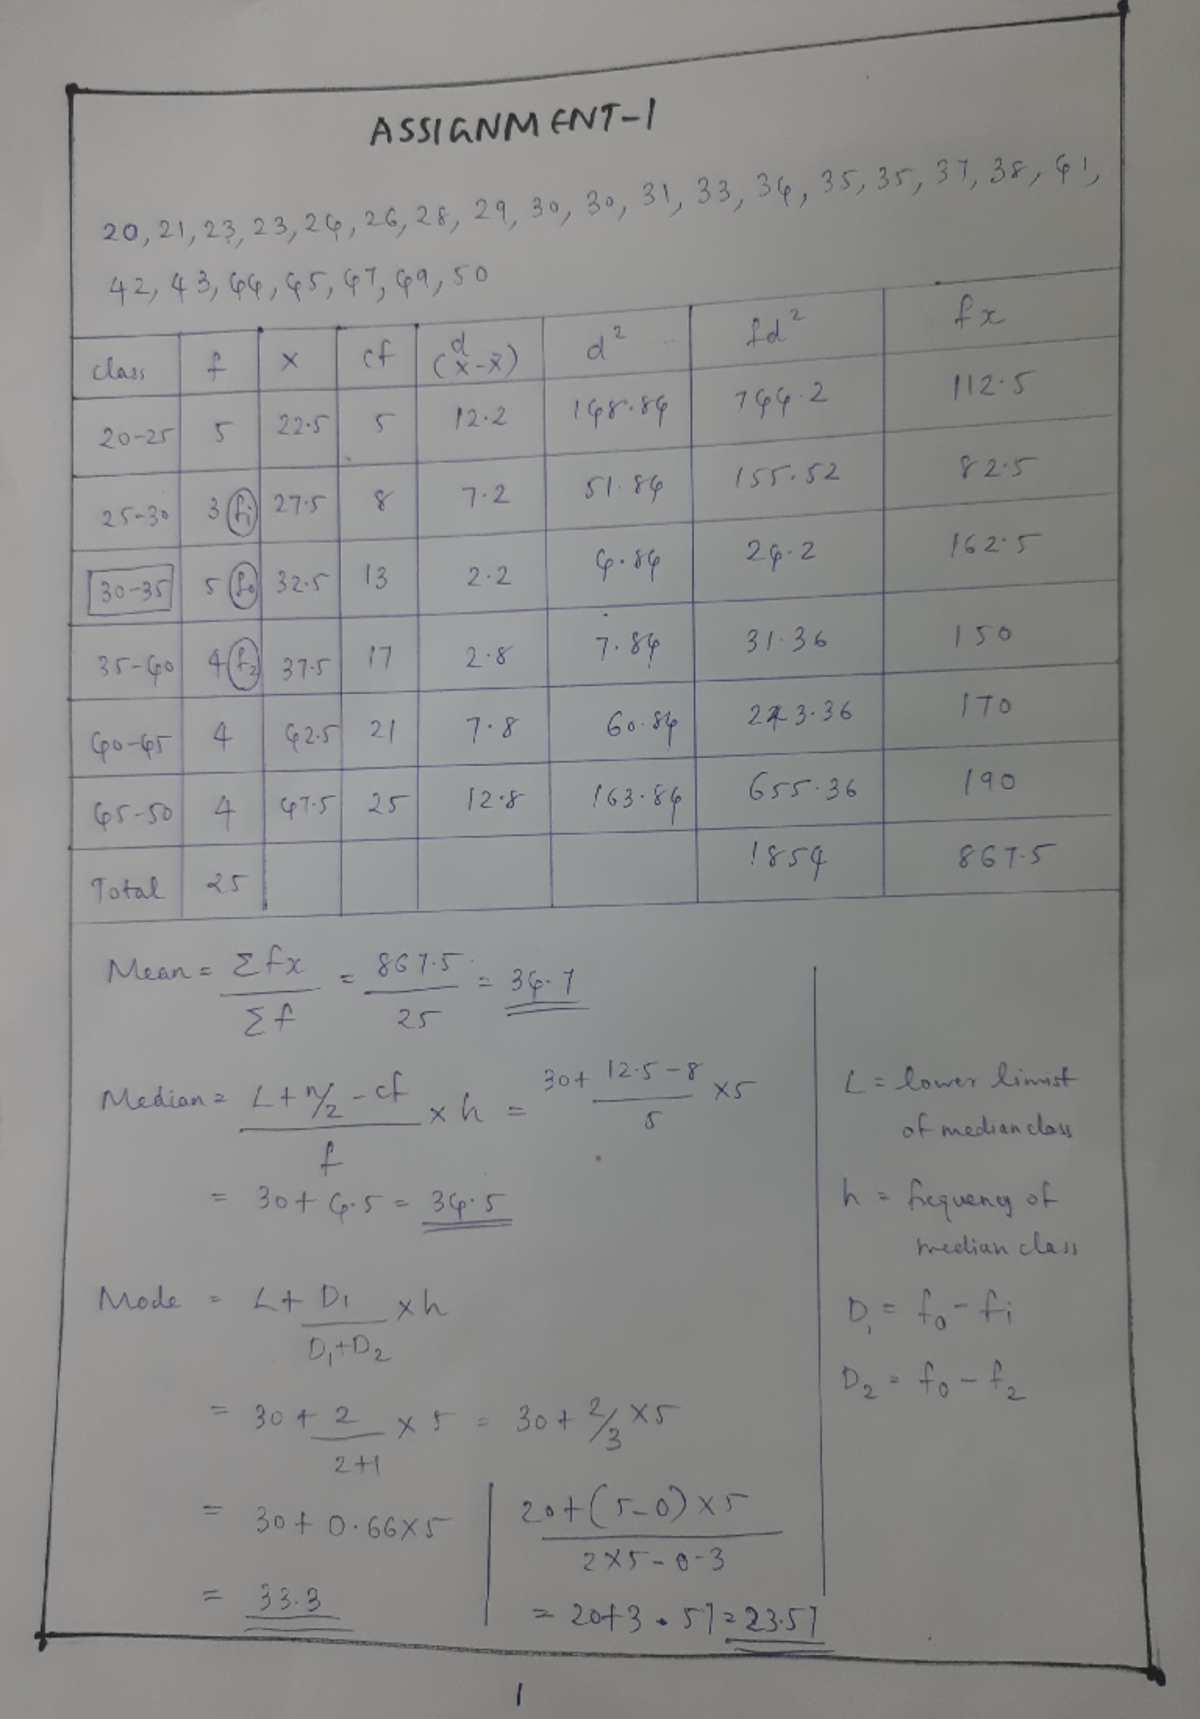 ASSIGNMENT-1
20, 21, 23, 23, 24, 26, 28, 29, 30, 30, 31, 33, 34, 35, 35, 37, 38, 41,
42, 43, 44, 45, 47, 49, 50
class f x cf d (x-x̄) d² fd² fx
20-25 5 22.5 5 12.2 148.84 744.2 112.5
25-30 3 (f1) 27.5 8 7.2 51.84 155.52 82.5
30-35 5 (f0) 32.5 13 2.2 4.84 24.2 162.5
35-40 4 (f2) 37.5 17 2.8 7.84 31.36 150
40-45 4 42.5 21 7.8 60.84 243.36 170
45-50 4 47.5 25 12.8 163.84 655.36 190
Total 25 1854 867.5
Mean = Σfx / Σf = 867.5 / 25 = 34.7
Median = L + n/2 - cf / f × h = 30 + 12.5 - 8 / 5 × 5
= 30 + 4.5 = 34.5
Mode = L + D1 / D1+D2 × h
= 30 + 2 / 2+1 × 5 = 30 + 2/3 × 5
= 30 + 0.66 × 5
= 33.3
20 + (5-0) × 5 / 2×5-0-3
= 20+3.57 = 23.57
L = lower limist
of median class
h = frequency of
median class
D1 = f0 - f1
D2 = f0 - f2
1